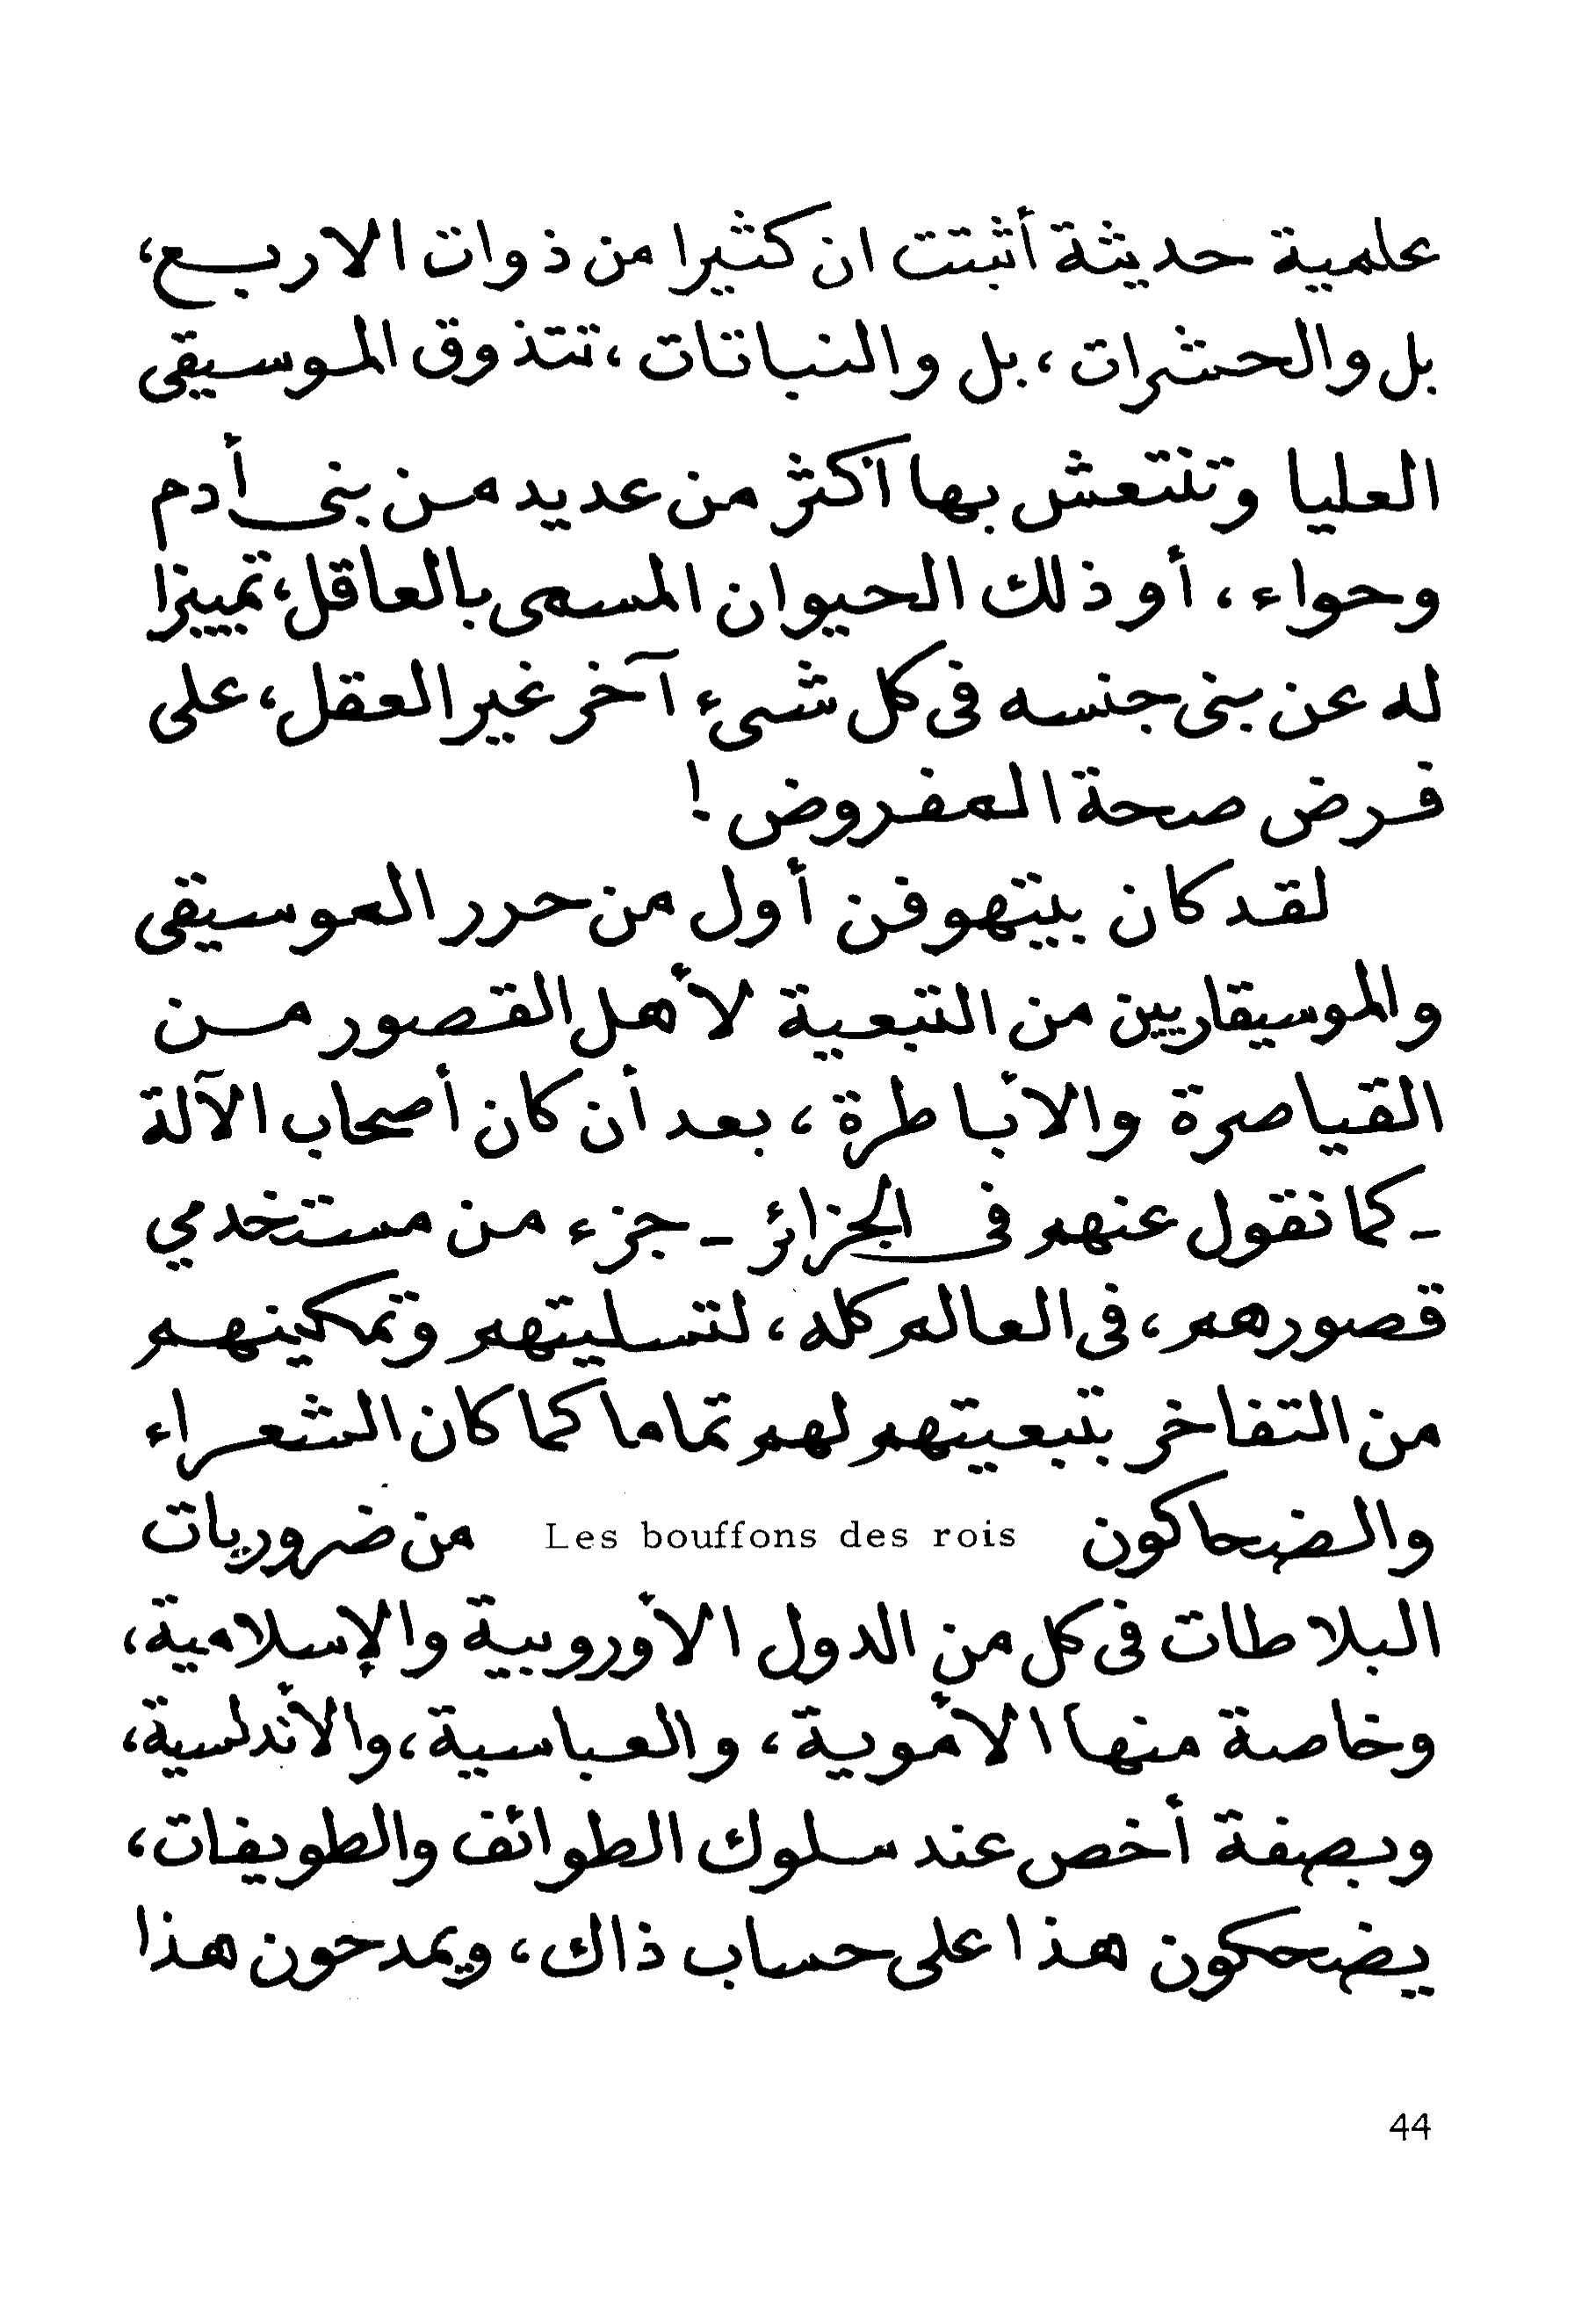 علمية حديثة أثبتت ان كثيرا من ذوات الاربع،
بل والحشرات ، بل والنباتات ، تتذوق الموسيقى
العليا وتنتعش بها أكثر من عديد من بنى أدم
وحواء ، أو ذلك الحيوان المسمى بالعاقل، تمييزا
له عن بنى جنسه فى كل شىء آخر غير العقل، على
فرض صحة المفروض !
لقد كان بيتهوفن أول من حرر الموسيقى
والموسيقاريين من التبعية لأهل القصور من
القياصرة والأباطرة ، بعد أن كان أصحاب الآلة
- كما نقول عنهم فى الجزائر - جزء من مستخدمي
قصورهم ، فى العالم كله ، لتسليتهم وتمكينهم
من التفاخر بتبعيتهم لهم تماما كما كان الشعراء
والضحاكون Les bouffons des rois من ضروريات
البلاطات فى كل من الدول الأوروبية والإسلامية،
وخاصة منها الأموية ، والعباسية ، والأندلسية،
وبصفة أخص عند سلوك الطوائف والطويفات،
يضحكون هذا على حساب ذاك ، ويمدحون هذا
44